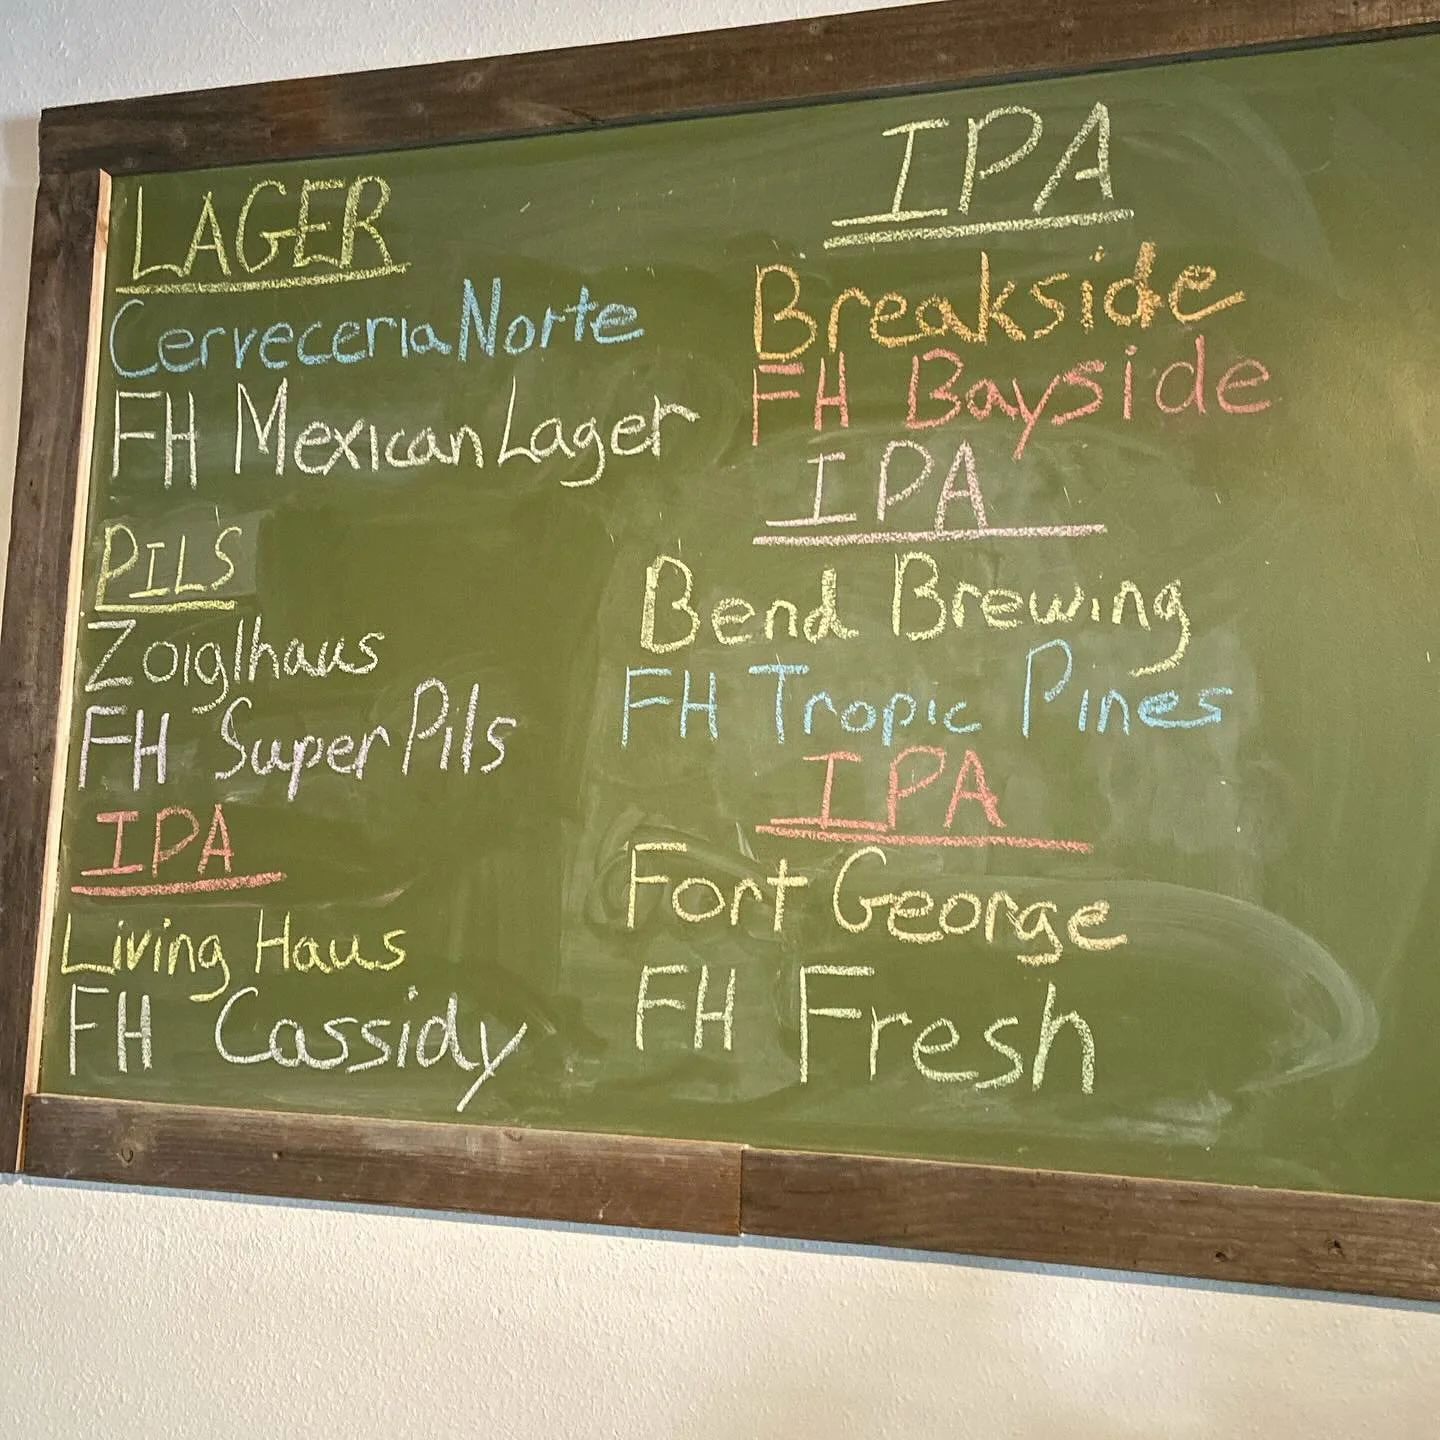 LAGER
Cerveceria Norte
FH Mexican Lager
PILS
Zoiglhaus
FH Super Pils
IPA
Living Haus
FH Cassidy
IPA
Breakside
FH Bayside
IPA
Bend Brewing
FH Tropic Pines
IPA
Fort George
FH Fresh